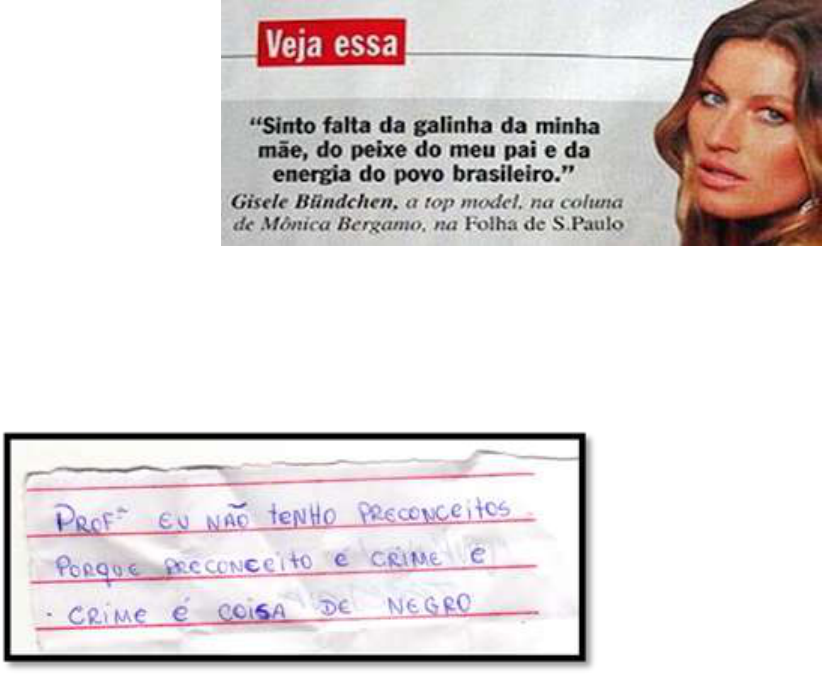 Veja essa
“Sinto falta da galinha da minha
mãe, do peixe do meu pai e da
energia do povo brasileiro.”
Gisele Bündchen, a top model, na coluna
de Mônica Bergamo, na Folha de S.Paulo
PROFª EU NÃO TENHO PRECONCEITOS
PORQUE PRECONCEITO É CRIME E
CRIME É COISA DE NEGRO